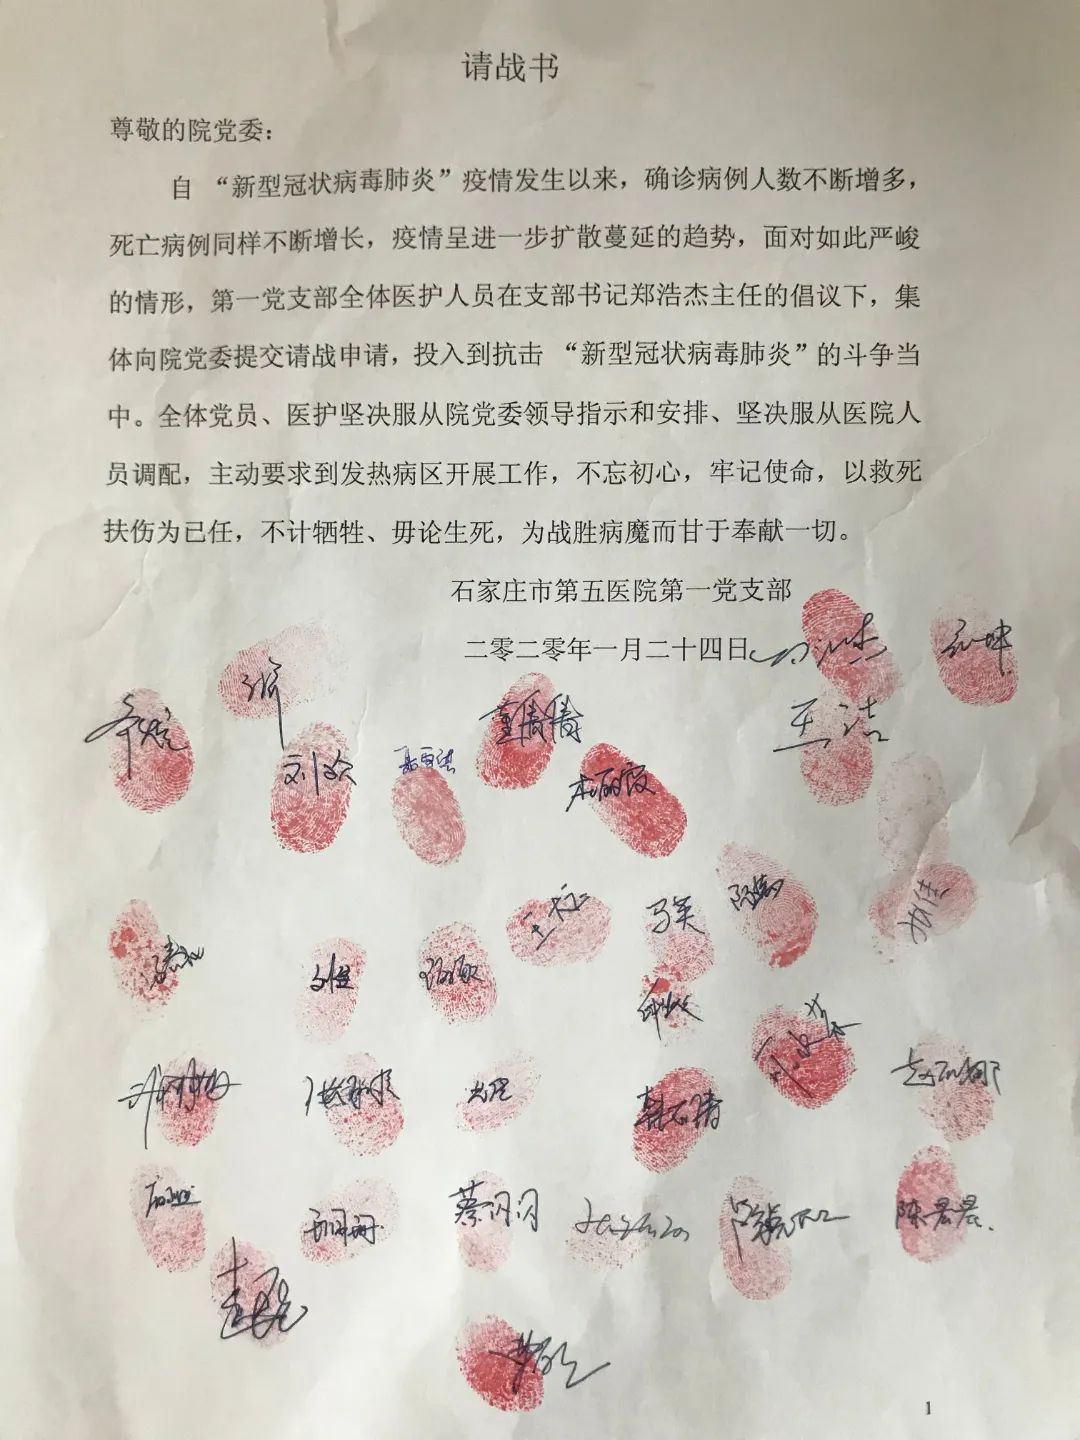 请战书
尊敬的院党委：
自 “新型冠状病毒肺炎”疫情发生以来，确诊病例人数不断增多，
死亡病例同样不断增长，疫情呈进一步扩散蔓延的趋势，面对如此严峻
的情形，第一党支部全体医护人员在支部书记郑浩杰主任的倡议下，集
体向院党委提交请战申请，投入到抗击 “新型冠状病毒肺炎”的斗争当
中。全体党员、医护坚决服从院党委领导指示和安排、坚决服从医院人
员调配，主动要求到发热病区开展工作，不忘初心，牢记使命，以救死
扶伤为已任，不计牺牲、毋论生死，为战胜病魔而甘于奉献一切。
石家庄市第五医院第一党支部
二零二零年一月二十四日
董倩倩
王洁
刘欢
杜丽霞
马英
韩石倩
赵丽娜
蔡闪闪
陈晨晨
1